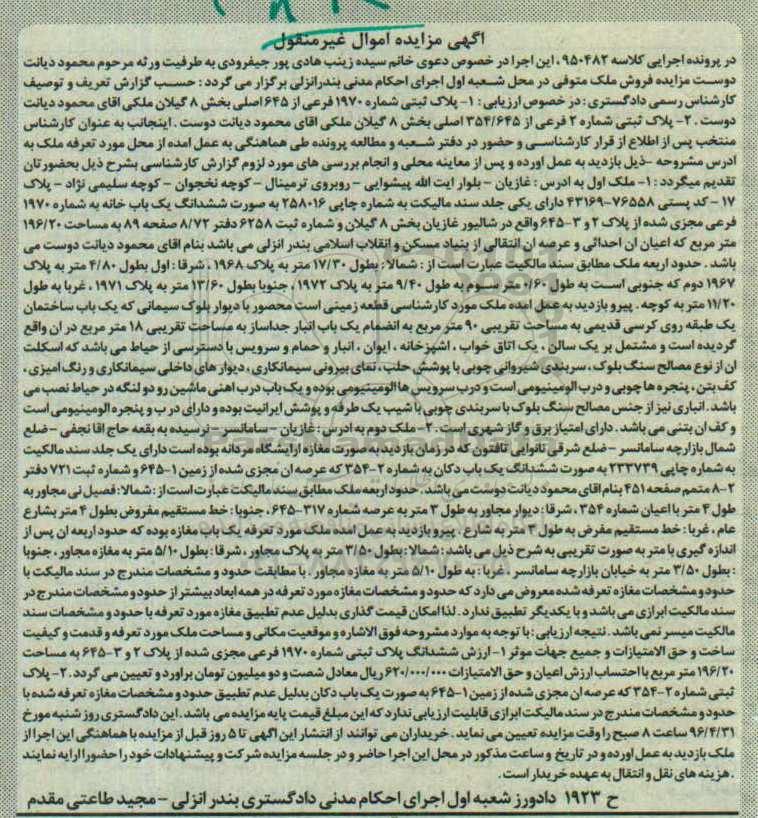 اگهی مزایده اموال غیرمنقول
در پرونده اجرایی کلاسه ۹۵۰۴۸۲ ، این اجرا در خصوص دعوی خانم سیده زینب هادی پور جیفرودی به طرفیت ورثه مرحوم محمود دیانت
دوست مزایده فروش ملک متوفی در محل شعبه اول اجرای احکام مدنی بندرانزلی برگزار می گردد : حسب گزارش تعریف و توصیف
کارشناس رسمی دادگستری : در خصوص ارزیابی : ۱- پلاک ثبتی شماره ۱۹۷۰ فرعی از ۶۴۵ اصلی بخش ۸ گیلان ملکی اقای محمود دیانت
دوست . ۲- پلاک ثبتی شماره ۲ فرعی از ۳۵۴/۶۴۵ اصلی بخش ۸ گیلان ملکی اقای محمود دیانت دوست . اینجانب به عنوان کارشناس
منتخب پس از اطلاع از قرار کارشناسی و حضور در دفتر شعبه و مطالعه پرونده طی هماهنگی به عمل امده از محل مورد تعرفه ملک به
ادرس مشروحه -ذیل بازدید به عمل اورده و پس از معاینه محلی و انجام بررسی های مورد لزوم گزارش کارشناسی بشرح ذیل بحضورتان
تقدیم میگردد : ۱- ملک اول به ادرس : غازیان - بلوار ایت الله پیشوایی - روبروی ترمینال - کوچه نخجوان - کوچه سلیمی نژاد - پلاک
۱۷ - کد پستی ۷۶۵۵۸-۴۳۱۶۹ دارای یکی جلد سند مالکیت به شماره چاپی ۲۵۸۰۱۶ به صورت ششدانگ یک باب خانه به شماره ۱۹۷۰
فرعی مجزی شده از پلاک ۲ و ۳-۶۴۵ واقع در شالیور غازیان بخش ۸ گیلان و شماره ثبت ۶۲۵۸ دفتر ۸/۷۲ صفحه ۸۹ به مساحت ۱۹۶/۲۰
متر مربع که اعیان ان احداثی و عرصه ان انتقالی از بنیاد مسکن و انقلاب اسلامی بندر انزلی می باشد بنام اقای محمود دیانت دوست می
باشد . حدود اربعه ملک مطابق سند مالکیت عبارت است از : شمالا: بطول ۱۷/۳۰ متر به پلاک ۱۹۶۸ ، شرقا : اول بطول ۴/۸۰ متر به پلاک
۱۹۶۷ دوم که جنوبی است به طول ۰/۶۰ متر سوم به طول ۹/۴۰ متر به پلاک ۱۹۷۲ ، جنوبا بطول ۱۳/۶۰ متر به پلاک ۱۹۷۱ ، غربا به طول
۱۱/۲۰ متر به کوچه . پیرو بازدید به عمل امده ملک مورد کارشناسی قطعه زمینی است محصور با دیوار بلوک سیمانی که یک باب ساختمان
یک طبقه روی کرسی قدیمی به مساحت تقریبی ۹۰ متر مربع به انضمام یک باب انبار جداساز به مساحت تقریبی ۱۸ متر مربع در ان واقع
گردیده است و مشتمل بر یک سالن ، یک اتاق خواب ، اشپزخانه ، ایوان ، انبار و حمام و سرویس با دسترسی از حیاط می باشد که اسکلت
ان از نوع مصالح سنگ بلوک ، سربندی شیروانی چوبی با پوشش حلب ، نمای بیرونی سیمانکاری ، دیوار های داخلی سیمانکاری و رنگ امیزی ،
کف بتن ، پنجره ها چوبی و درب الومینیومی است و درب سرویس ها الومینیومی بوده و یک باب درب اهنی ماشین رو دو لنگه در حیاط نصب می
باشد . انباری نیز از جنس مصالح سنگ بلوک با سربندی چوبی با شیب یک طرفه و پوشش ایرانیت بوده و دارای در ب و پنجره الومینیومی است
و کف ان بتنی می باشد . دارای امتیاز برق و گاز شهری است . ۲- ملک دوم به ادرس : غازیان - سامانسر - نرسیده به بقعه حاج اقا نجفی - ضلع
شمال بازارچه سامانسر - ضلع شرقی نانوایی تافتون که در زمان بازدید به صورت مغازه ارایشگاه مردانه بوده است دارای یک جلد سند مالکیت
به شماره چاپی ۲۳۳۷۳۹ به صورت ششدانگ یک باب دکان به شماره ۲-۳۵۴ که عرصه ان مجزی شده از زمین ۱-۶۴۵ و شماره ثبت ۷۲۱ دفتر
۲-۸ متمم صفحه ۴۵۱ بنام اقای محمود دیانت دوست می باشد . حدود اربعه ملک مطابق سند مالکیت عبارت است از : شمالا: فصیل نی مجاور به
طول ۴ متر با اعیان شماره ۳۵۴ ، شرقا : دیوار مجاور به طول ۳ متر به عرصه شماره ۳۱۷-۶۴۵ ، جنوبا : خط مستقیم مفروض بطول ۴ متر بشارع
عام ، غربا : خط مستقیم مفرض به طول ۳ متر به شارع . پیرو بازدید به عمل امده ملک مورد تعرفه یک باب مغازه بوده که حدود اربعه ان پس از
اندازه گیری با متر به صورت تقریبی به شرح ذیل می باشد : شمالا : بطول ۳/۵۰ متر به پلاک مجاور ، شرقا : بطول ۵/۱۰ متر به مغازه مجاور ، جنوبا
: بطول ۳/۵۰ متر به خیابان بازارچه سامانسر ، غربا : به طول ۵/۱۰ متر به مغازه مجاور . با مطابقت حدود و مشخصات مندرج در سند مالکیت با
حدود و مشخصات مغازه تعرفه شده معروض می دارد که حدود و مشخصات مغازه مورد تعرفه در همه ابعاد بیشتر از حدود و مشخصات مندرج در
سند مالکیت ابرازی می باشد و با یکدیگر تطبیق ندارد . لذا امکان قیمت گذاری بدلیل عدم تطبیق مغازه مورد تعرفه با حدود و مشخصات سند
مالکیت میسر نمی باشد . نتیجه ارزیابی : با توجه به موارد مشروحه فوق الاشاره و موقعیت مکانی و مساحت ملک مورد تعرفه و قدمت و کیفیت
ساخت و حق الامتیازات و جمیع جهات موثر ۱- ارزش ششدانگ پلاک ثبتی شماره ۱۹۷۰ فرعی مجزی شده از پلاک ۲ و ۳-۶۴۵ به مساحت
۱۹۶/۲۰ متر مربع با احتساب ارزش اعیان و حق الامتیازات ۶۲۰/۰۰۰/۰۰۰ ریال معادل شصت و دو میلیون تومان براورد و تعیین می گردد . ۲- پلاک
ثبتی شماره ۲-۳۵۴ که عرصه ان مجزی شده از زمین ۱-۶۴۵ به صورت یک باب دکان بدلیل عدم تطبیق حدود و مشخصات مغازه تعرفه شده با
حدود و مشخصات مندرج در سند مالکیت ابرازی قابلیت ارزیابی ندارد که این مبلغ قیمت پایه مزایده می باشد . این دادگستری روز شنبه مورخ
۹۶/۴/۳۱ ساعت ۸ صبح را وقت مزایده تعیین می نماید . خریداران می توانند از انتشار این اگهی تا ۵ روز قبل از مزایده با هماهنگی این اجرا از
ملک بازدید به عمل اورده و در تاریخ و ساعت مذکور در محل این اجرا حاضر و در جلسه مزایده شرکت و پیشنهادات خود را حضورا ارایه نمایند
. هزینه های نقل و انتقال به عهده خریدار است .
ح ۱۹۲۳ دادورز شعبه اول اجرای احکام مدنی دادگستری بندر انزلی - مجید طاعتی مقدم